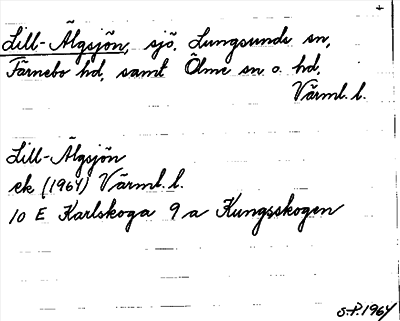 +
Lill-Älgsjön, sjö, Lungsunds sn,
Färnebo hd, samt Ölme sn o. hd,
Värml. l.
Lill-Älgsjön
ek (1964) Värml. l.
10 E Karlskoga 9 a Kungsskogen
S.-P. 1964